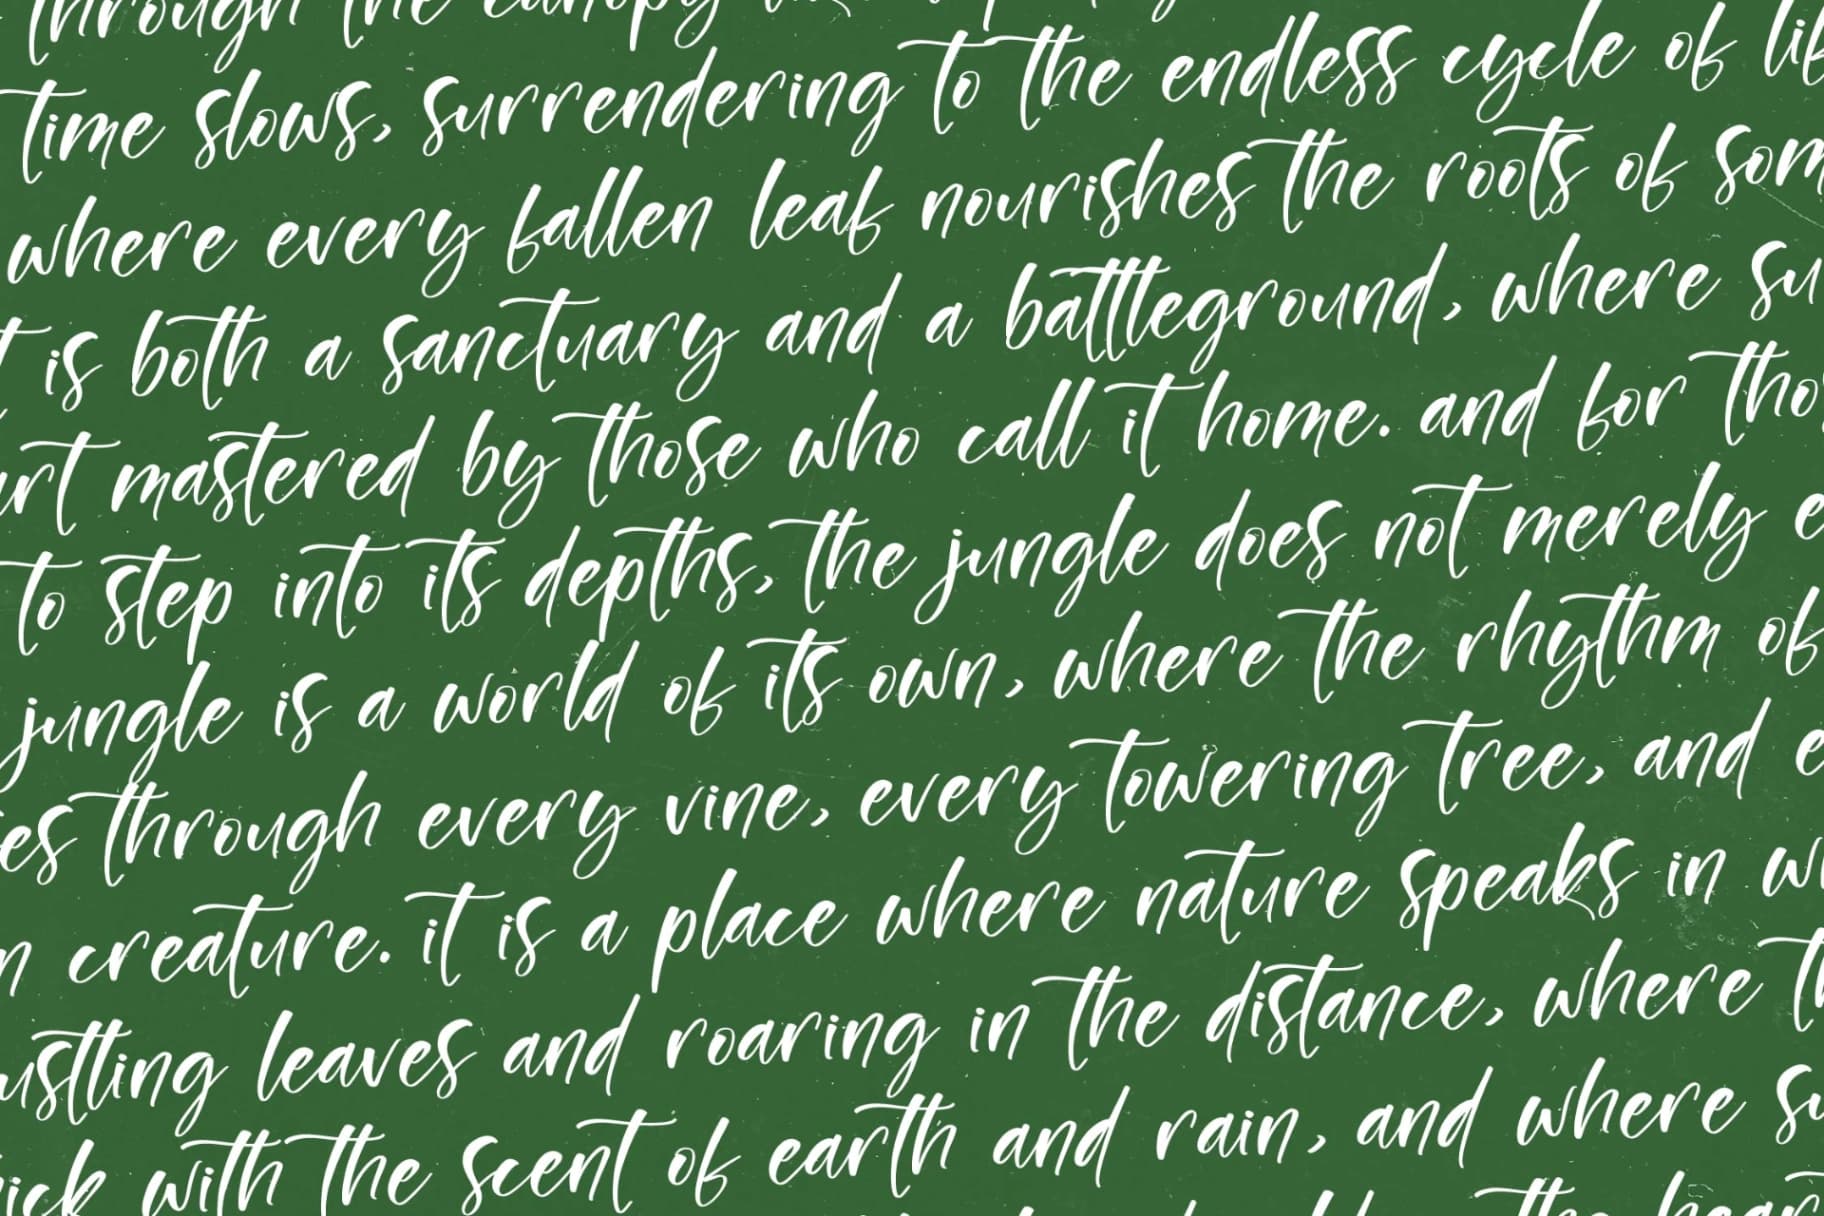 through the canopy
time slows, surrendering to the endless cycle of
where every fallen leaf nourishes the roots of
is both a sanctuary and a battleground, where
mastered by those who call it home. and for
to step into its depths, the jungle does not merely
jungle is a world of its own, where the rhythm of
through every vine, every towering tree, and
creature. it is a place where nature speaks in
leaves and roaring in the distance, where
with the scent of earth and rain, and where
the